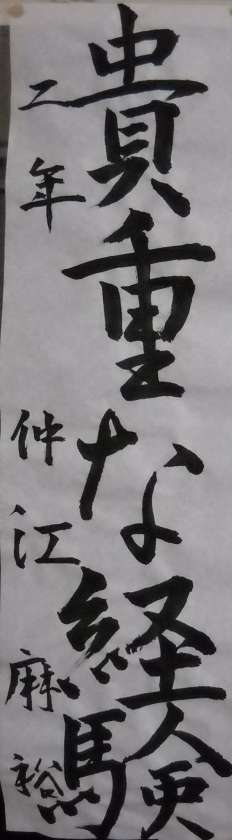 貴重な経験
二年 仲江麻裕